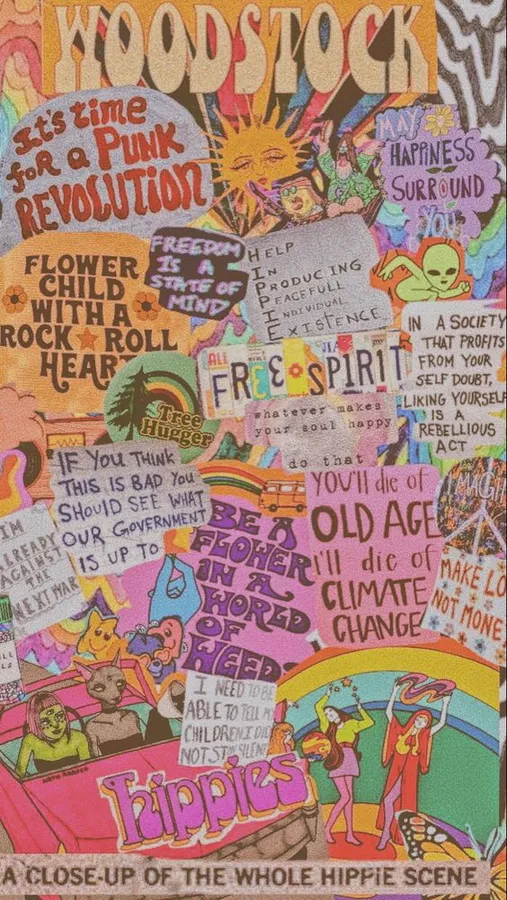 WOODSTOCK
It's time
for a PUNK
REVOLUTION
MAY
HAPPINESS
SURROUND
YOU
FREEDOM
IS A
STATE OF
MIND
HELP
IN
PRODUCING
PEACEFULL
INDIVIDUAL
EXISTENCE
FLOWER
CHILD
WITH A
ROCK ROLL
HEART
ALL
FREE SPIRIT
IN A SOCIETY
THAT PROFITS
FROM YOUR
SELF DOUBT,
LIKING YOURSELF
IS A
REBELLIOUS
ACT
Tree
Hugger
whatever makes
your soul happy
do that
IF YOU THINK
THIS IS BAD YOU
SHOULD SEE WHAT
OUR GOVERNMENT
IS UP TO
YOU'll die of
OLD AGE
i'll die of
CLIMATE
CHANGE
I'M
ALREADY
AGAINST
THE
NEXT WAR
BE A
FLOWER
IN A
WORLD
OF
WEEDS
MAKE LO
NOT MONE
I NEED TO BE
ABLE TO TELL M
CHILDREN I DID
NOT STAY SILENT
hippies
A CLOSE-UP OF THE WHOLE HIPPIE SCENE